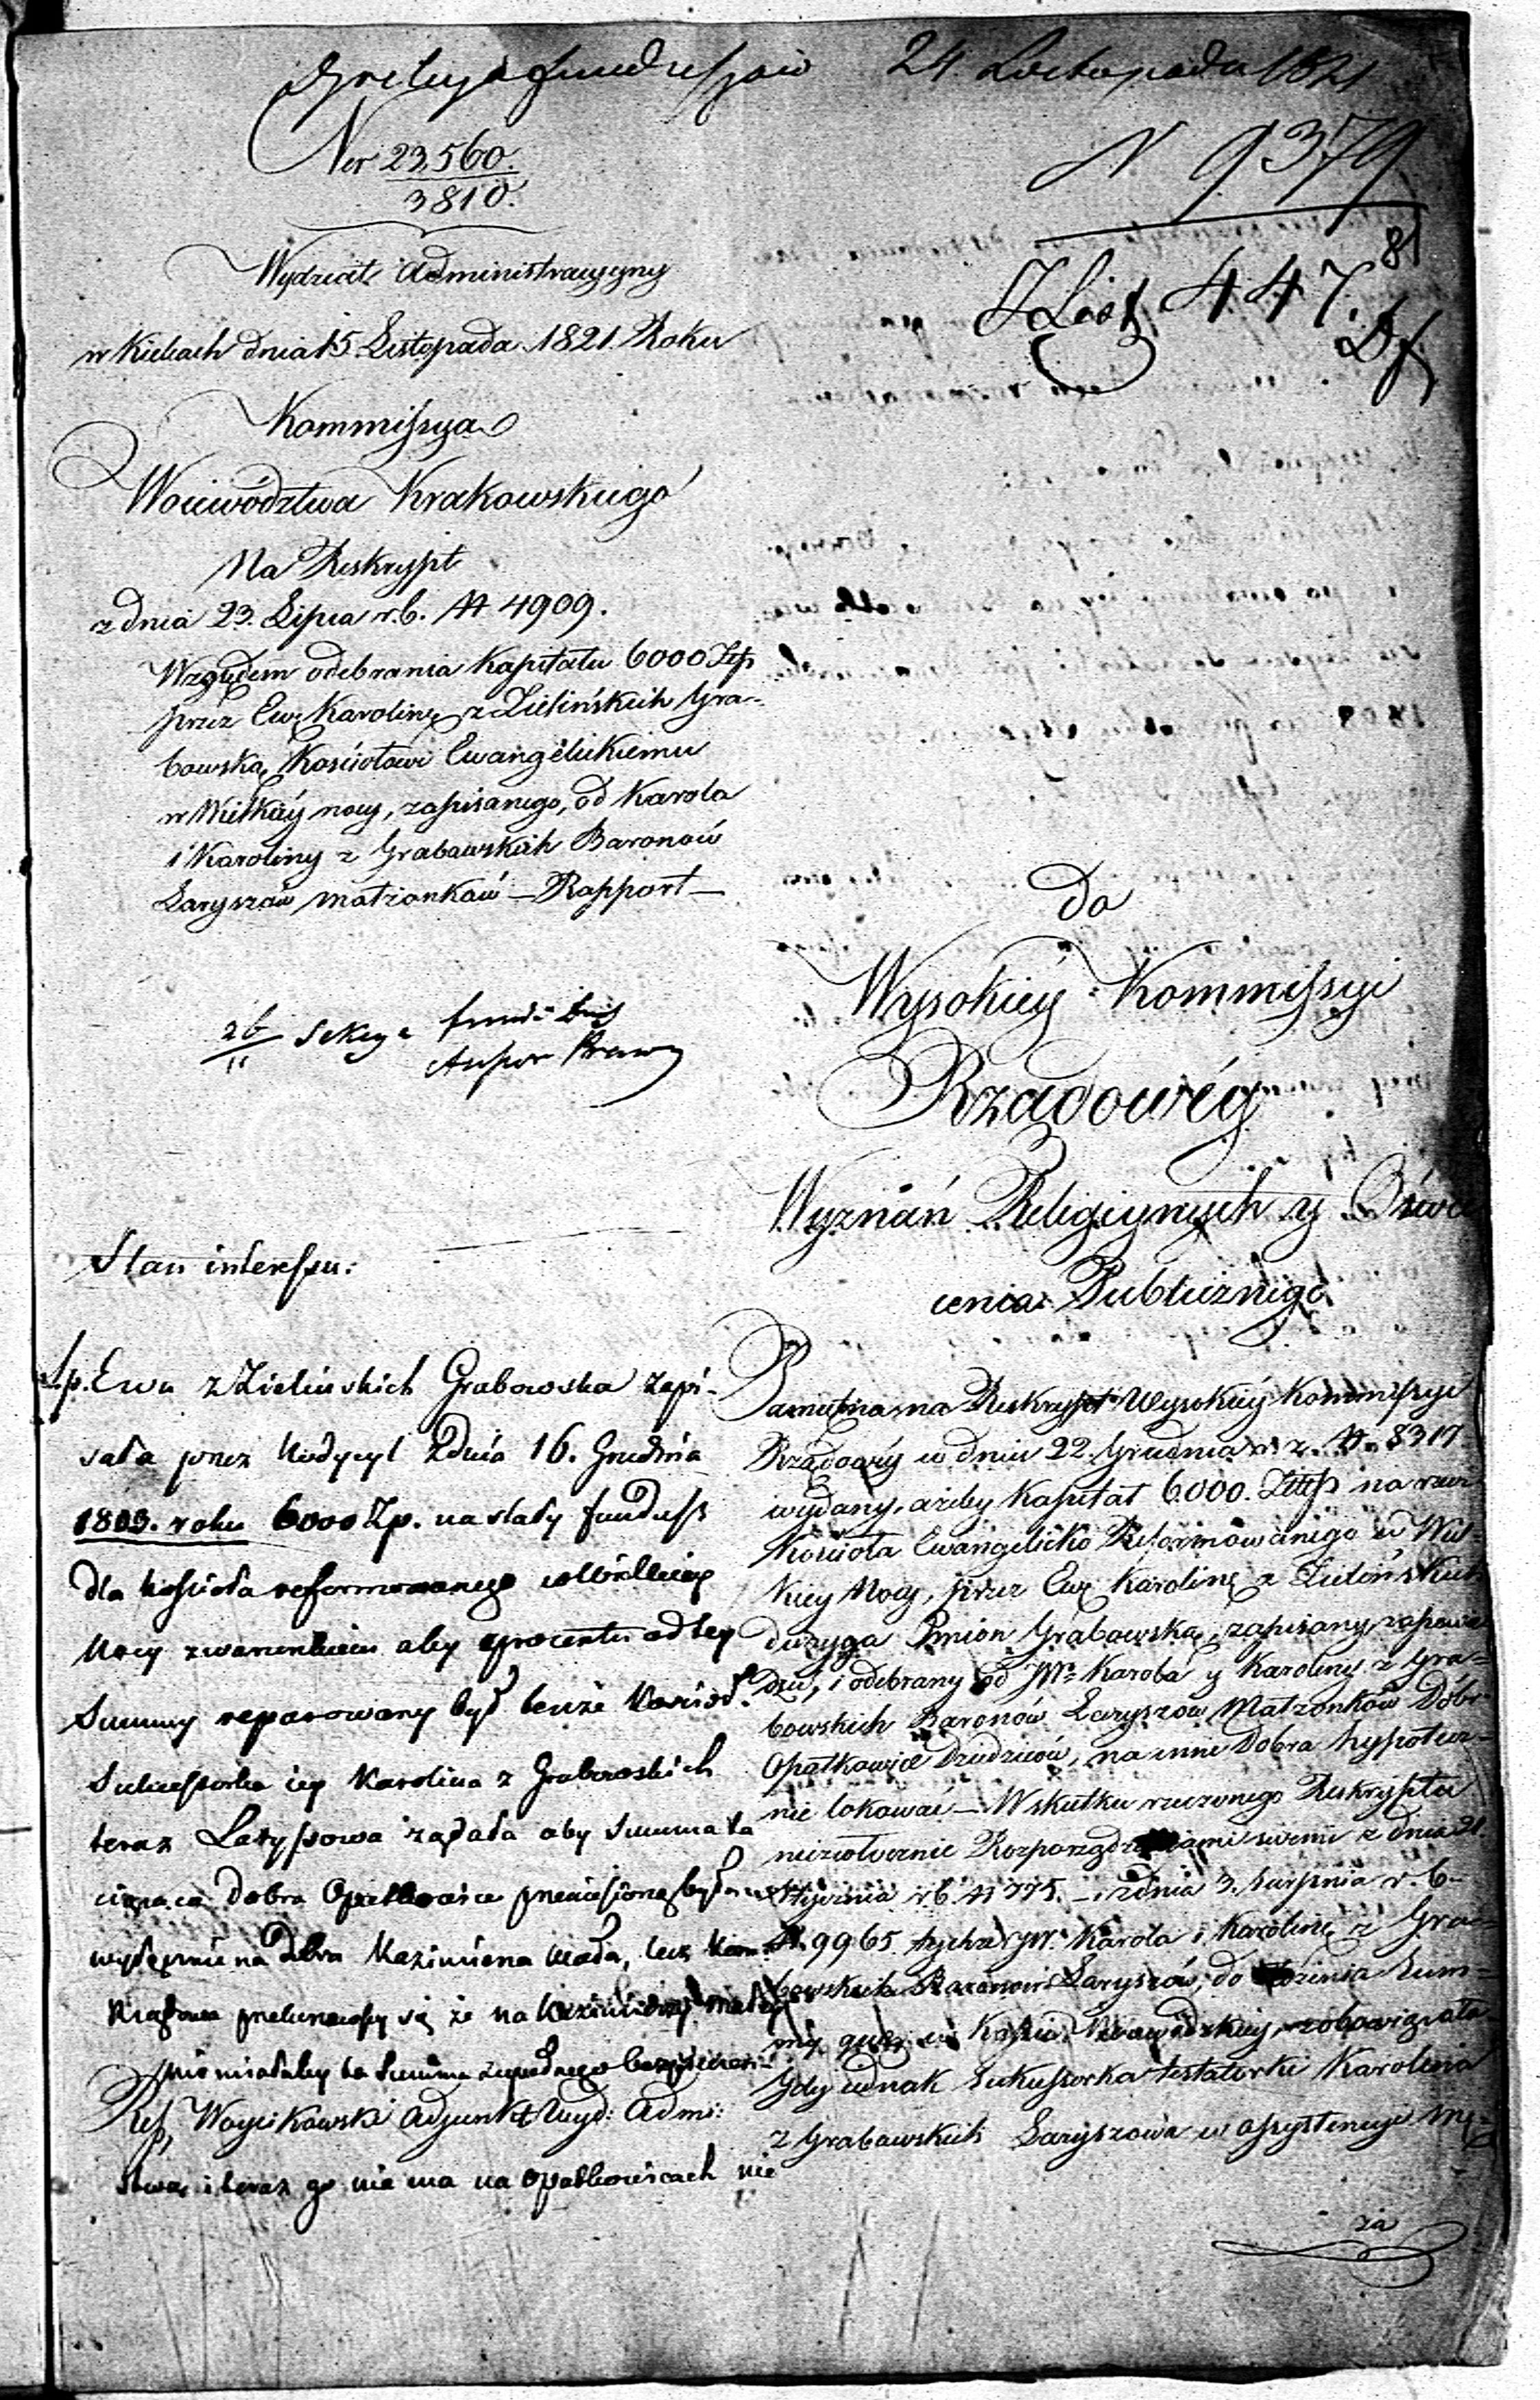 24 Listopada 1821
Ner 23,560.
3810.
N 9379
81
447.
Wydział Administracyjny
w Kielcach dnia 15. Listopada 1821 Roku
Kommissya
Woiewództwa Krakowskiego
Na Reskrypt
z dnia 23. Lipca r.b. N 4909.
Względem odebrania Kapitału 6000 Złp
przez Ewę Karolinę z Zielińskich Gra-
bowską Kościołowi Ewangelickiemu
w Wielkiéy nocy, zapisanego, od Karola
i Karoliny z Grabowskich Baronów
Laryszów małżonków — Rapport —
26
11
Do
Wysokiéy Kommissyi
Rządowéy
Wyznań Religiynych y Oświe
cenia Publicznego
Stan interessu:
Śp. Ewa z Zielińskich Grabowska zapi-
sała przez Kodycyl z dnia 16. Grudnia
1803. roku 6000 Zp. na stały fundusz
dla kościoła reformowanego w Wielkiey
Nocy z warunkiem aby z procentu od tey
Summy reparowany był tenże Kościoł.
Sukcessorka iey Karolina z Grabowskich
teraz Laryssowa żądała aby Summa ta
ciążąca dobra Opatkowice przeniesioną była
na Dobra Kazimierza Mała, lecz Kom
się że na
nie miałaby ta Summa zupełnego bezpieczeń-
Ref. Woycikowski Adjunkt Wyd: Adm:
stwa, i teraz go nie ma na Opatkowicach nie
Pamiętna na Reskrypt Wysokiéy Kommissyi
Rządowéy w dniu 22. Grudnia r. z. N. 8317.
wydany, ażeby Kapitał 6000. Złłp na rzecz
Kościoła Ewangelicko Reformowanego w Wiel-
kiey Nocy, przez Ewę Karolinę z Zielińskich
dwoyga Imion Grabowską, zapisany,
i odebrany od JW: Karola y Karoliny z Gra-
bowskich Baronów Laryszów Małżonków Dóbr
Opatkowice Dziedziców, na inne Dobra hypotecz-
nie lokować — W skutku rzeczonego Reskryptu
niezwłocznie Rozporządzeniami swemi z dnia 21.
Stycznia r b. N 775. — i z dnia 3. Sierpnia r. b.
N. 9965 tychże JW. Karola i Karolinę z Gra-
bowskich Baronów Laryszów, do złożenia Sum-
my w Kassie Woiewódzkiéy, zobowiązała
Gdy iednak Sukcessorka testatorki Karolina
z Grabowskich Laryszowa w assystencyi Mę-
za